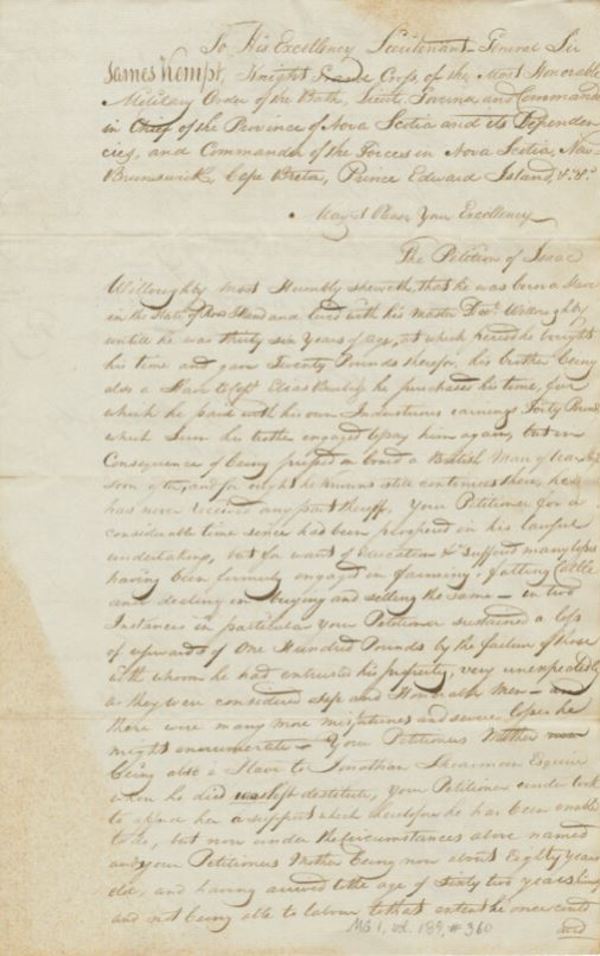 To His Excellency Lieutenant General Sir
James Kempt, Knight Grand Cross, of the Most Honorable
Military Order of the Bath, Lieut. Governor and Commander
in Chief of the Province of Nova Scotia and its Dependen
cies, and Commander of the Forces in Nova Scotia, New
Brunswick, Cape Breton, Prince Edward Island, &c. &c.
May it Please Your Excellency
The Petition of Isaac
Willoughby most Humbly sheweth, that he was born a Slave
in the State of and lived with his master Doct. Willoughby
until he was thirty six Years of age, at which period he bought
his time and gave Twenty Pounds therefor, his brother being
also a Slave to Capt. Elias he purchased his time, for
which he paid with his own Industrious earnings Forty Pounds
which Sum his brother engaged to pay him again, but in
Consequence of being pressed on board a British Man of War
soon after, and for ought he knows still continues there, he
has never received any part thereof, Your Petitioner for a
considerable time since had been prospered in his lawful
undertaking, but for want of Education &c suffered many losses
having been formerly engaged in farming, fatting Cattle
and dealing in buying and selling the same – in two
Instances in particular your Petitioner sustained a loss
of upwards of One Hundred Pounds by the failure of those
with whom he had entrusted his property, very unexpectedly
as they were considered safe and Honorable Men – and
there were many more misfortunes and severe losses he
might enumerate – Your Petitioners Mother
being also a Slave to Jonathan Shearman Esquire
when he died was left destitute, your Petitioner under took
to afford her a support which heretofore he has been enabled
to do, but now under the Circumstances above named
and your Petitioners Mother being now about Eighty years
old, and having arrived to the age of Sixty two years himself
and not being able to labour to that extent he once could
and
MG 1, vol. 189, # 360